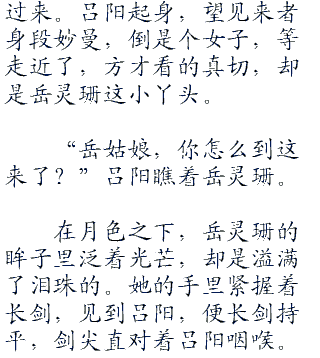 过来。吕阳起身，望见来者
身段妙曼，倒是个女子，等
走近了，方才看的真切，却
是岳灵珊这小丫头。
“岳姑娘，你怎么到这
来了？”吕阳瞧着岳灵珊。
在月色之下，岳灵珊的
眸子里泛着光芒，却是溢满
了泪珠的。她的手里紧握着
长剑，见到吕阳，便长剑持
平，剑尖直对着吕阳咽喉。